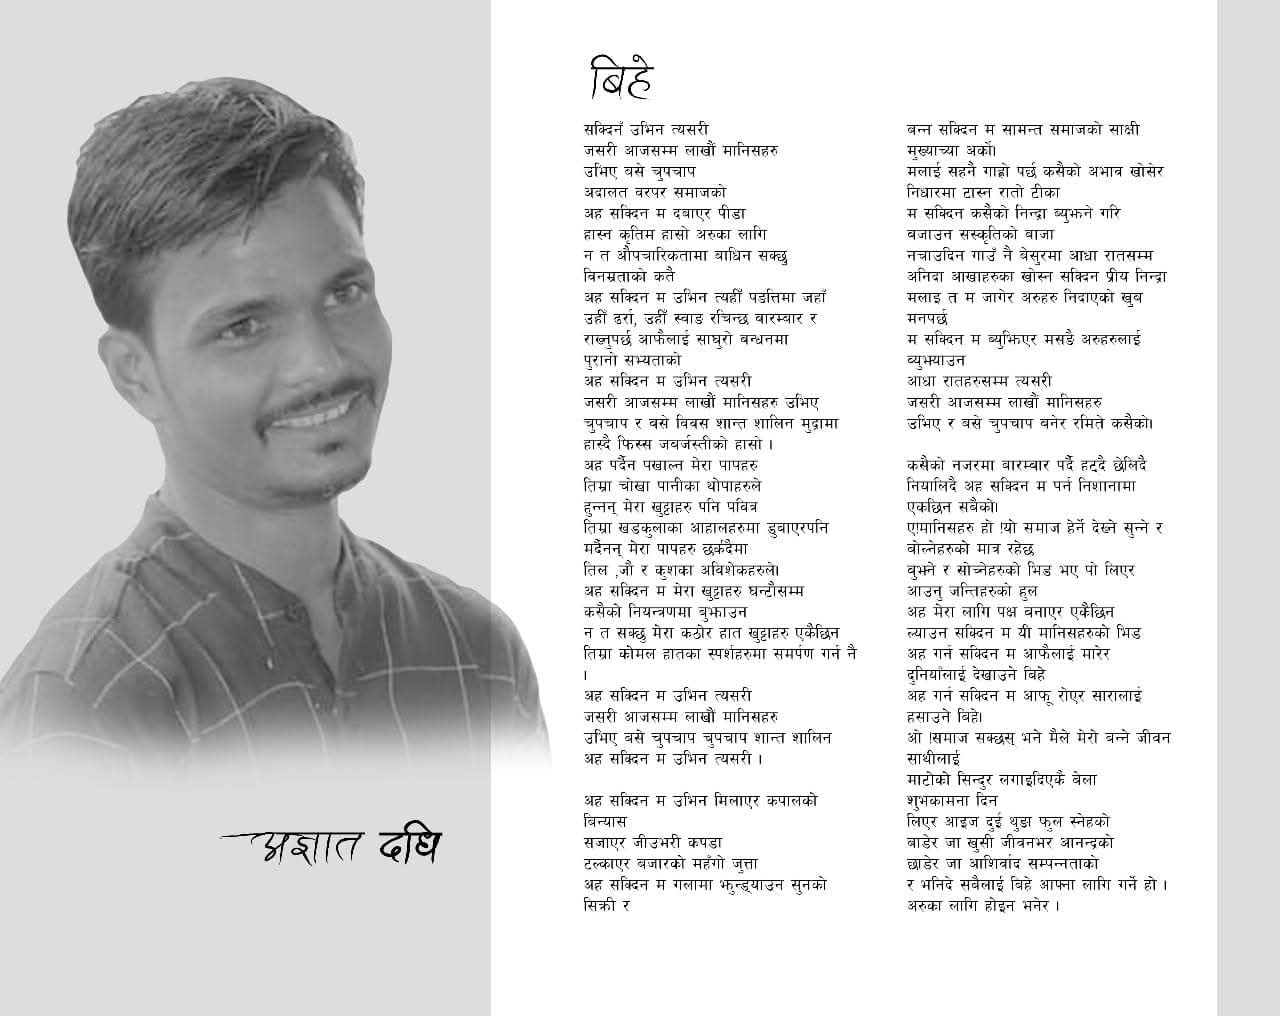 बिहे
सक्दिनँ उभिन त्यसरी
जसरी आजसम्म लाखौं मानिसहरु
उभिए बसे चुपचाप
अदालत वरपर समाजको
अह सक्दिन म दबाएर पीडा
हास्न कृतिम हासो अरुका लागि
न त औपचारिकतामा बाधिन सक्छु
विनम्रताको कतै
अह सक्दिन म उभिन त्यहीँ पङत्तिमा जहाँ
उहीँ ढर्रा, उहीँ स्वाङ रचिन्छ बारम्बार र
राख्नुपर्छ आफैलाई साघुरो बन्धनमा
पुरानो सभ्यताको
अह सक्दिन म उभिन त्यसरी
जसरी आजसम्म लाखौं मानिसहरु उभिए
चुपचाप र बसे विबस शान्त शालिन मुद्रामा
हास्दै फिस्स जबर्जस्तीको हासो ।
अह पर्दैन पखाल्न मेरा पापहरु
तिम्रा चोखा पानीका थोपाहरुले
हुन्नन् मेरा खुट्टाहरु पनि पवित्र
तिम्रा खड्कुलाका आहालहरुमा डुबाएरपनि
मर्दैनन् मेरा पापहरु छर्कदैमा
तिल ,जौ र कुशका अविशेकहरुले।
अह सक्दिन म मेरा खुट्टाहरु घन्टौसम्म
कसैको नियन्त्रणमा बुझाउन
न त सक्छु मेरा कठोर हात खुट्टाहरु एकैछिन
तिम्रा कोमल हातका स्पर्शहरुमा समर्पण गर्न नै
।
अह सक्दिन म उभिन त्यसरी
जसरी आजसम्म लाखौं मानिसहरु
उभिए बसे चुपचाप चुपचाप शान्त शालिन
अह सक्दिन म उभिन त्यसरी ।
अह सक्दिन म उभिन मिलाएर कपालको
बिन्यास
सजाएर जीउभरी कपडा
टल्काएर बजारको महँगो जुत्ता
अह सक्दिन म गलामा झुन्ड्याउन सुनको
सिक्री र
बन्न सक्दिन म सामन्त समाजको साक्षी
मुख्याच्या अर्को।
मलाई सहनै गाह्रो पर्छ कसैको अभाव खोसेर
निधारमा टास्न रातो टीका
म सक्दिन कसैको निन्द्रा ब्युझने गरि
बजाउन सस्कृतिको बाजा
नचाउदिन गाउँ नै बेसुरमा आधा रातसम्म
अनिदा आखाहरुका खोस्न सक्दिन प्रीय निन्द्रा
मलाइ त म जागेर अरुहरु निदाएको खुब
मनपर्छ
म सक्दिन म ब्युझिएर मसङै अरुहरुलाई
ब्युझ्याउन
आधा रातहरुसम्म त्यसरी
जसरी आजसम्म लाखौं मानिसहरु
उभिए र बसे चुपचाप बनेर रमिते कसैको।
कसैको नजरमा बारम्बार पर्दै हट्दै छेलिदै
नियालिदै अह सक्दिन म पर्न निशानामा
एकछिन सबैको।
ए!मानिसहरु हो !यो समाज हेर्ने देख्ने सुन्ने र
बोल्नेहरुको मात्र रहेछ
बुझ्ने र सोच्नेहरुको भिड भए पो लिएर
आउनु जन्तिहरुको हुल
अह मेरा लागि पक्ष बनाएर एकैछिन
ल्याउन सक्दिन म यी मानिसहरुको भिड
अह गर्न सक्दिन म आफैलाई मारेर
दुनियाँलाई देखाउने बिहे
अह गर्न सक्दिन म आफू रोएर सारालाई
हसाउने बिहे।
ओ !समाज सक्छस् भने मैले मेरो बन्ने जीवन
साथीलाई
माटोको सिन्दुर लगाइदिएकै बेला
शुभकामना दिन
लिएर आइज दुई थुङा फुल स्नेहको
बाडेर जा खुसी जीवनभर आनन्द्रको
छाडेर जा आशिर्वाद सम्पन्नताको
र भनिदे सबैलाई बिहे आफ्ना लागि गर्ने हो ।
अरुका लागि होइन भनेर ।
अज्ञात दधि